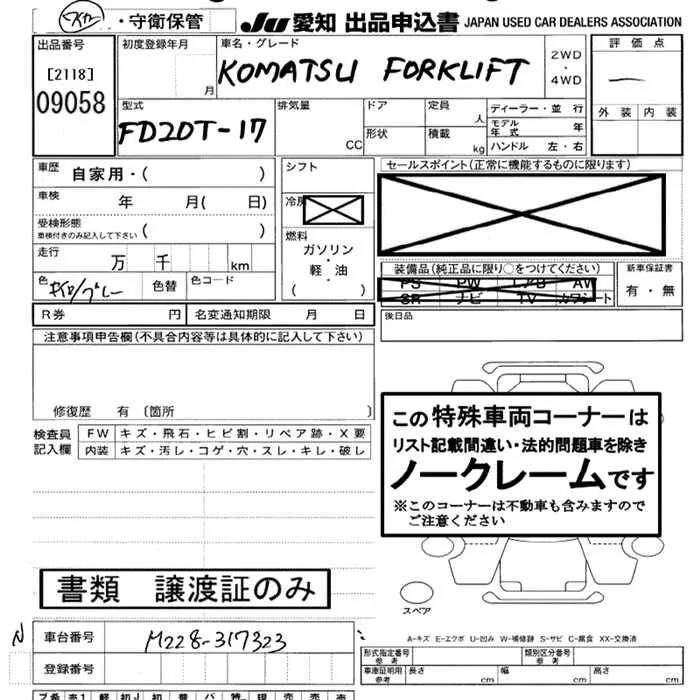 ・守衛保管
JU 愛知 出品申込書 JAPAN USED CAR DEALERS ASSOCIATION
出品番号
[2118]
09058
初度登録年月
月
車名・グレード
KOMATSU FORKLIFT
2WD
・
4WD
評価点
外装 内装
型式
FD20T-17
排気量
CC
ドア
形状
定員
人
積載
kg
ディーラー・並行
モデル年式 年
ハンドル 左・右
車歴 自家用・( )
車検 年 月( 日)
受検形態
車検付きのみ記入して下さい ( )
走行 万 千 km
色
色替
色コード
シフト
冷房
燃料
ガソリン
・
軽・油
( )
セールスポイント(正常に機能するものに限ります)
装備品(純正品に限り○をつけてください)
PS PW エアB AW
SR ナビ TV カワシート
新車保証書
有・無
R券 円
名変通知期限 月 日
後日品
注意事項申告欄(不具合内容等は具体的に記入して下さい)
修復歴 有 〔箇所 〕
検査員
記入欄
FW キズ・飛石・ヒビ割・リペア跡・X要
内装 キズ・汚レ・コゲ・穴・スレ・キレ・破レ
この特殊車両コーナーは
リスト記載間違い・法的問題車を除き
ノークレームです
※このコーナーは不動車も含みますので
ご注意ください
書類 譲渡証のみ
スペア
A-キズ E-エクボ U-凹み W-補修跡 S-サビ C-腐食 XX-交換済
N
車台番号 M228-317323
登録番号
形式指定番号
参考
類別区分番号
参考
車庫証明用
参考
長さ cm
幅 cm
高さ cm